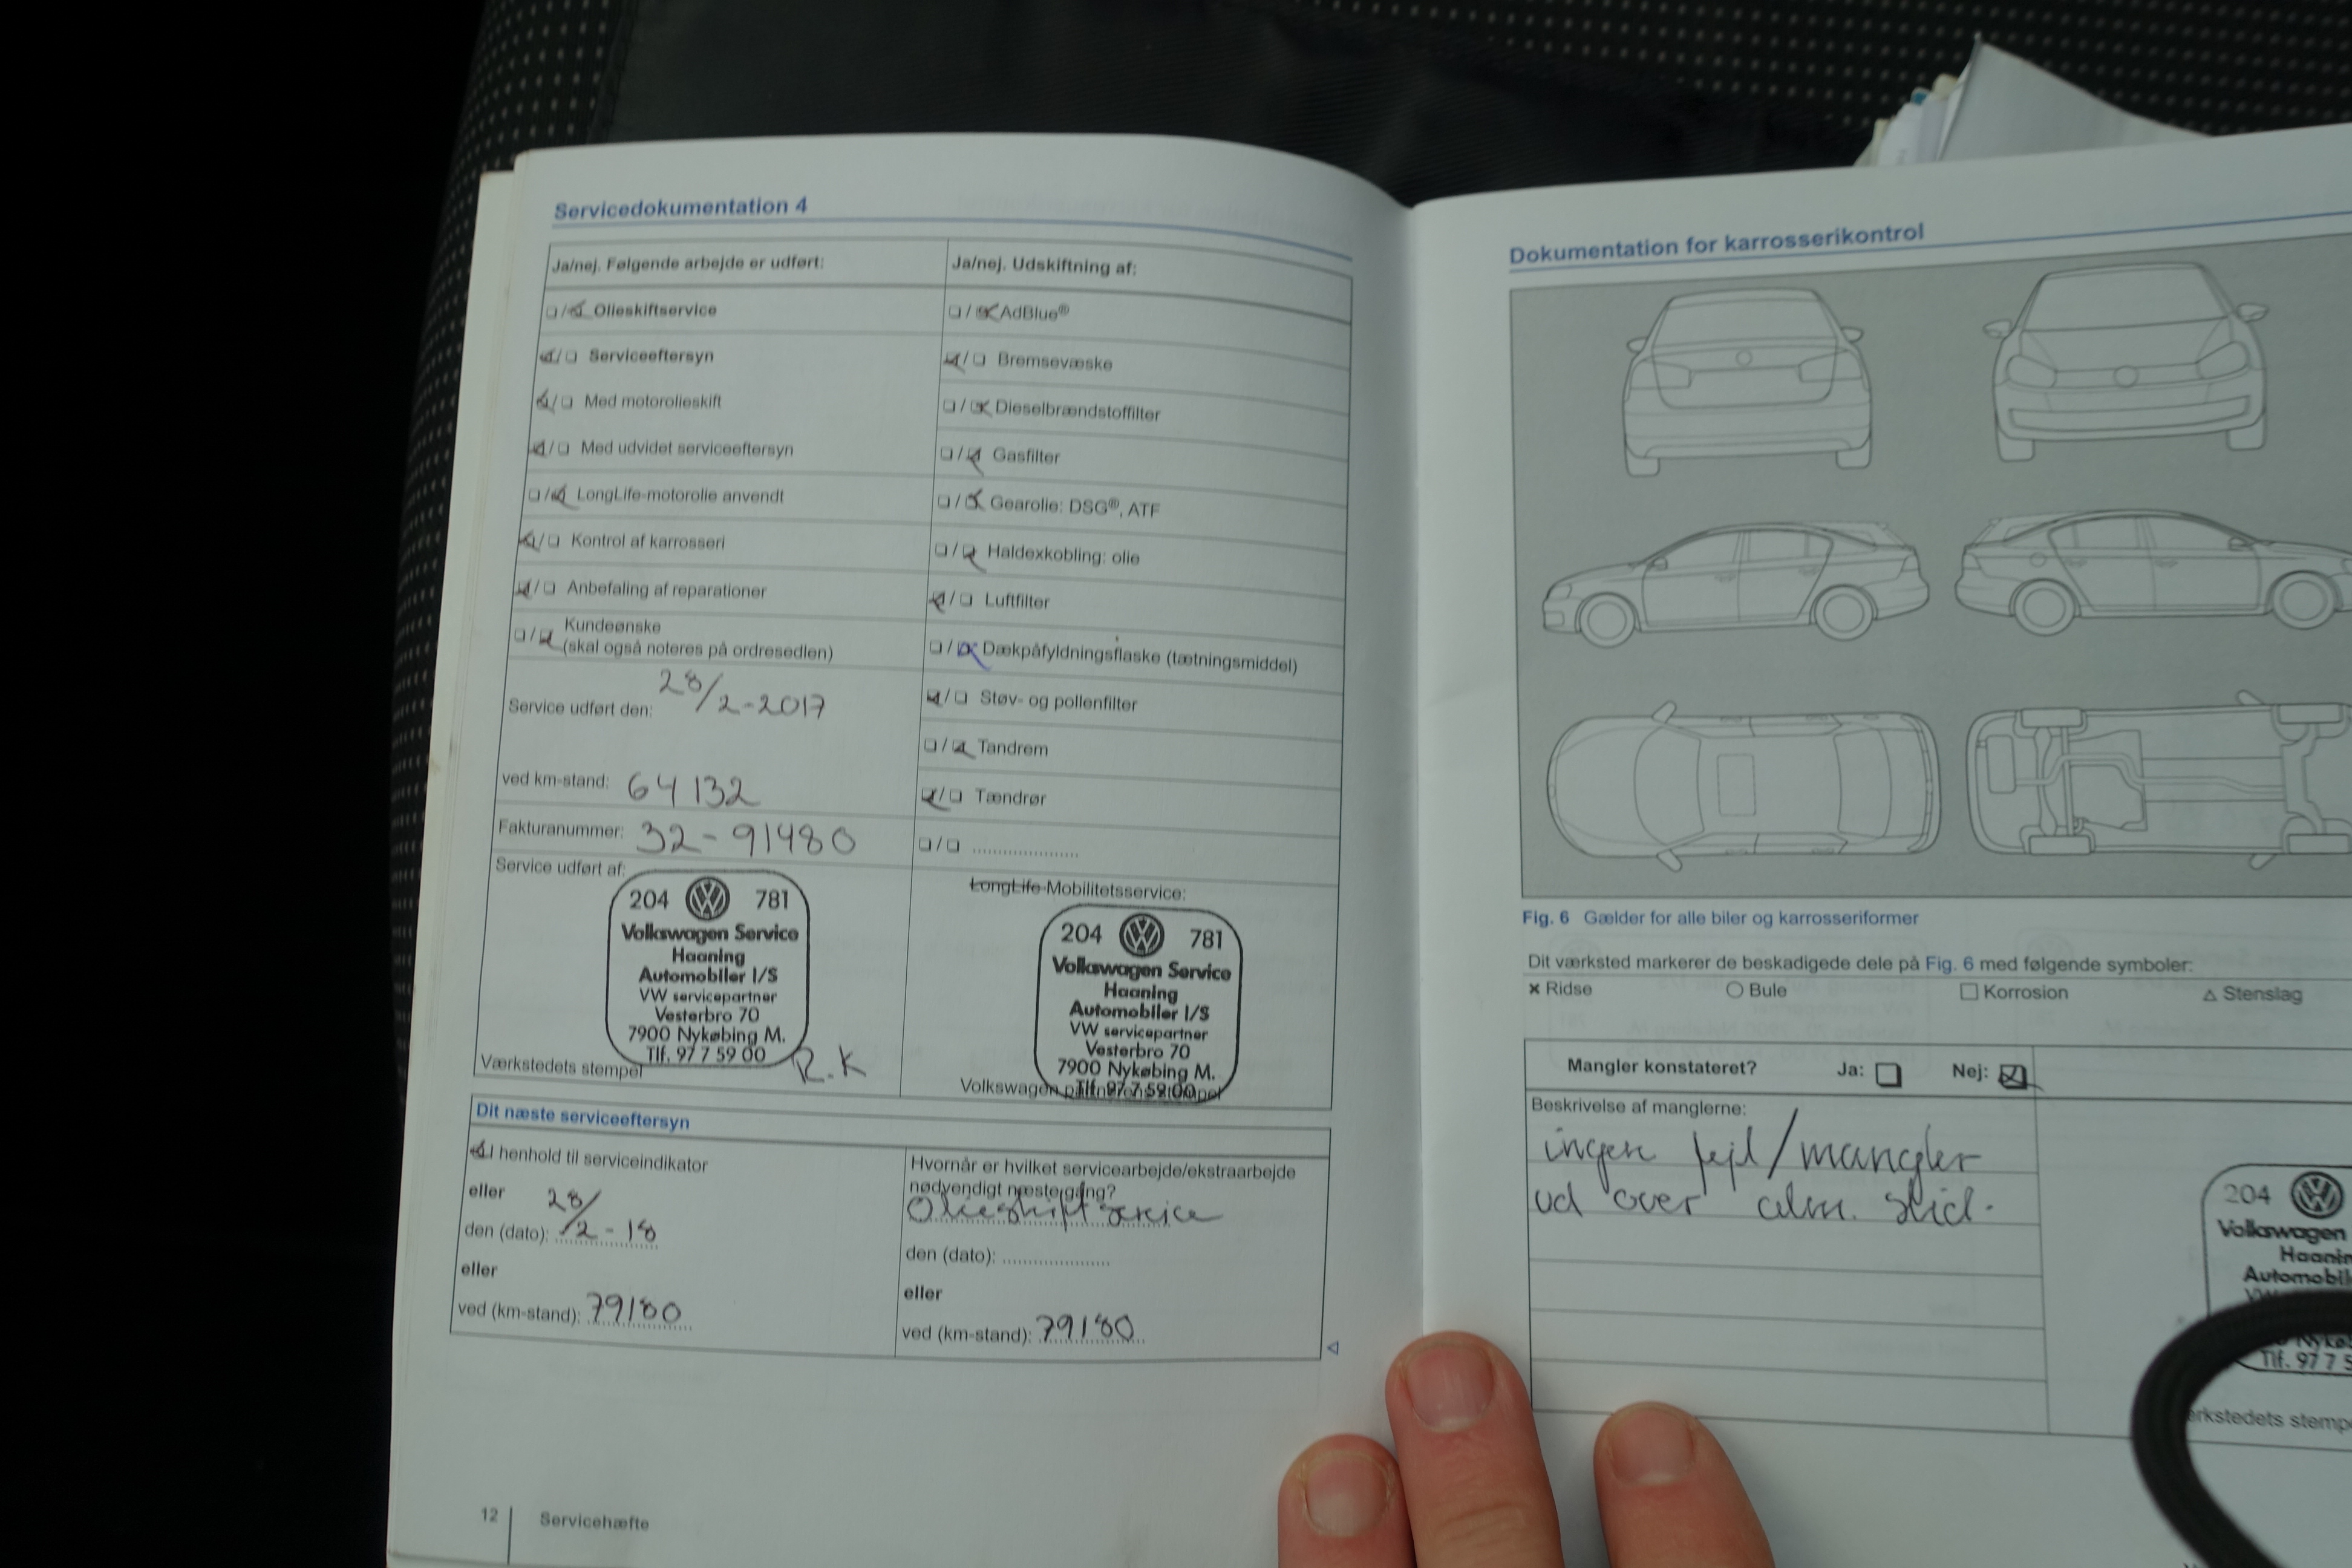 Servicedokumentation 4
Ja/nej. Følgende arbejde er udført:
☐/☑ Olieskiftservice
☑/☐ Serviceeftersyn
☑/☐ Med motorolieskift
☑/☐ Med udvidet serviceeftersyn
☐/☑ LongLife-motorolie anvendt
☑/☐ Kontrol af karrosseri
☑/☐ Anbefaling af reparationer
☐/☑ Kundeønske
(skal også noteres på ordresedlen)
Service udført den: 28/2-2017
ved km-stand: 64132
Fakturanummer: 32-91480
Service udført af:
204 781
Volkswagen Service
Haaning
Automobiler I/S
VW servicepartner
Vesterbro 70
7900 Nykøbing M.
Tlf. 97 7 59 00
R.K
Værkstedets stempel
Ja/nej. Udskiftning af:
☐/☑ AdBlue®
☑/☐ Bremsevæske
☐/☑ Dieselbrændstoffilter
☐/☑ Gasfilter
☐/☑ Gearolie: DSG®, ATF
☐/☑ Haldexkobling: olie
☑/☐ Luftfilter
☐/☑ Dækpåfyldningsflaske (tætningsmiddel)
☑/☐ Støv- og pollenfilter
☐/☑ Tandrem
☑/☐ Tændrør
☐/☐ .....................
LongLife-Mobilitetsservice:
204 781
Volkswagen Service
Haaning
Automobiler I/S
VW servicepartner
Vesterbro 70
7900 Nykøbing M.
Tlf. 97 7 59 00
Volkswagen
Dit næste serviceeftersyn
☑ I henhold til serviceindikator
eller
den (dato): 28/2-18
eller
ved (km-stand): 79180
Hvornår er hvilket servicearbejde/ekstraarbejde
nødvendigt næste gang?
Olieskift service
den (dato): .....................
eller
ved (km-stand): 79180
12 Servicehæfte
Dokumentation for karrosserikontrol
Fig. 6 Gælder for alle biler og karrosseriformer
Dit værksted markerer de beskadigede dele på Fig. 6 med følgende symboler:
× Ridse ○ Bule □ Korrosion △ Stenslag
Mangler konstateret? Ja: ☐ Nej: ☒
Beskrivelse af manglerne:
ingen fejl/mangler
ud over alm. slid.
204
Volkswagen
Tlf. 97 7 5